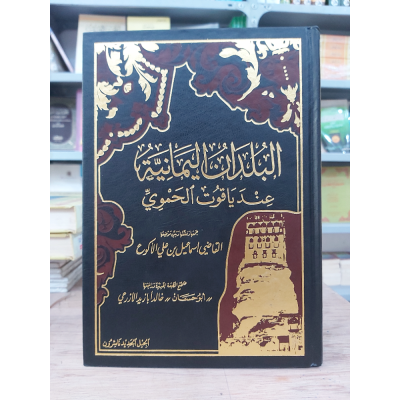 البلدان اليمانية
عند ياقوت الحموي
القاضي إسماعيل بن علي الأكوع
أبو حسان خالد أبا زيد الأذرعي
الجيل الجديد ناشرون